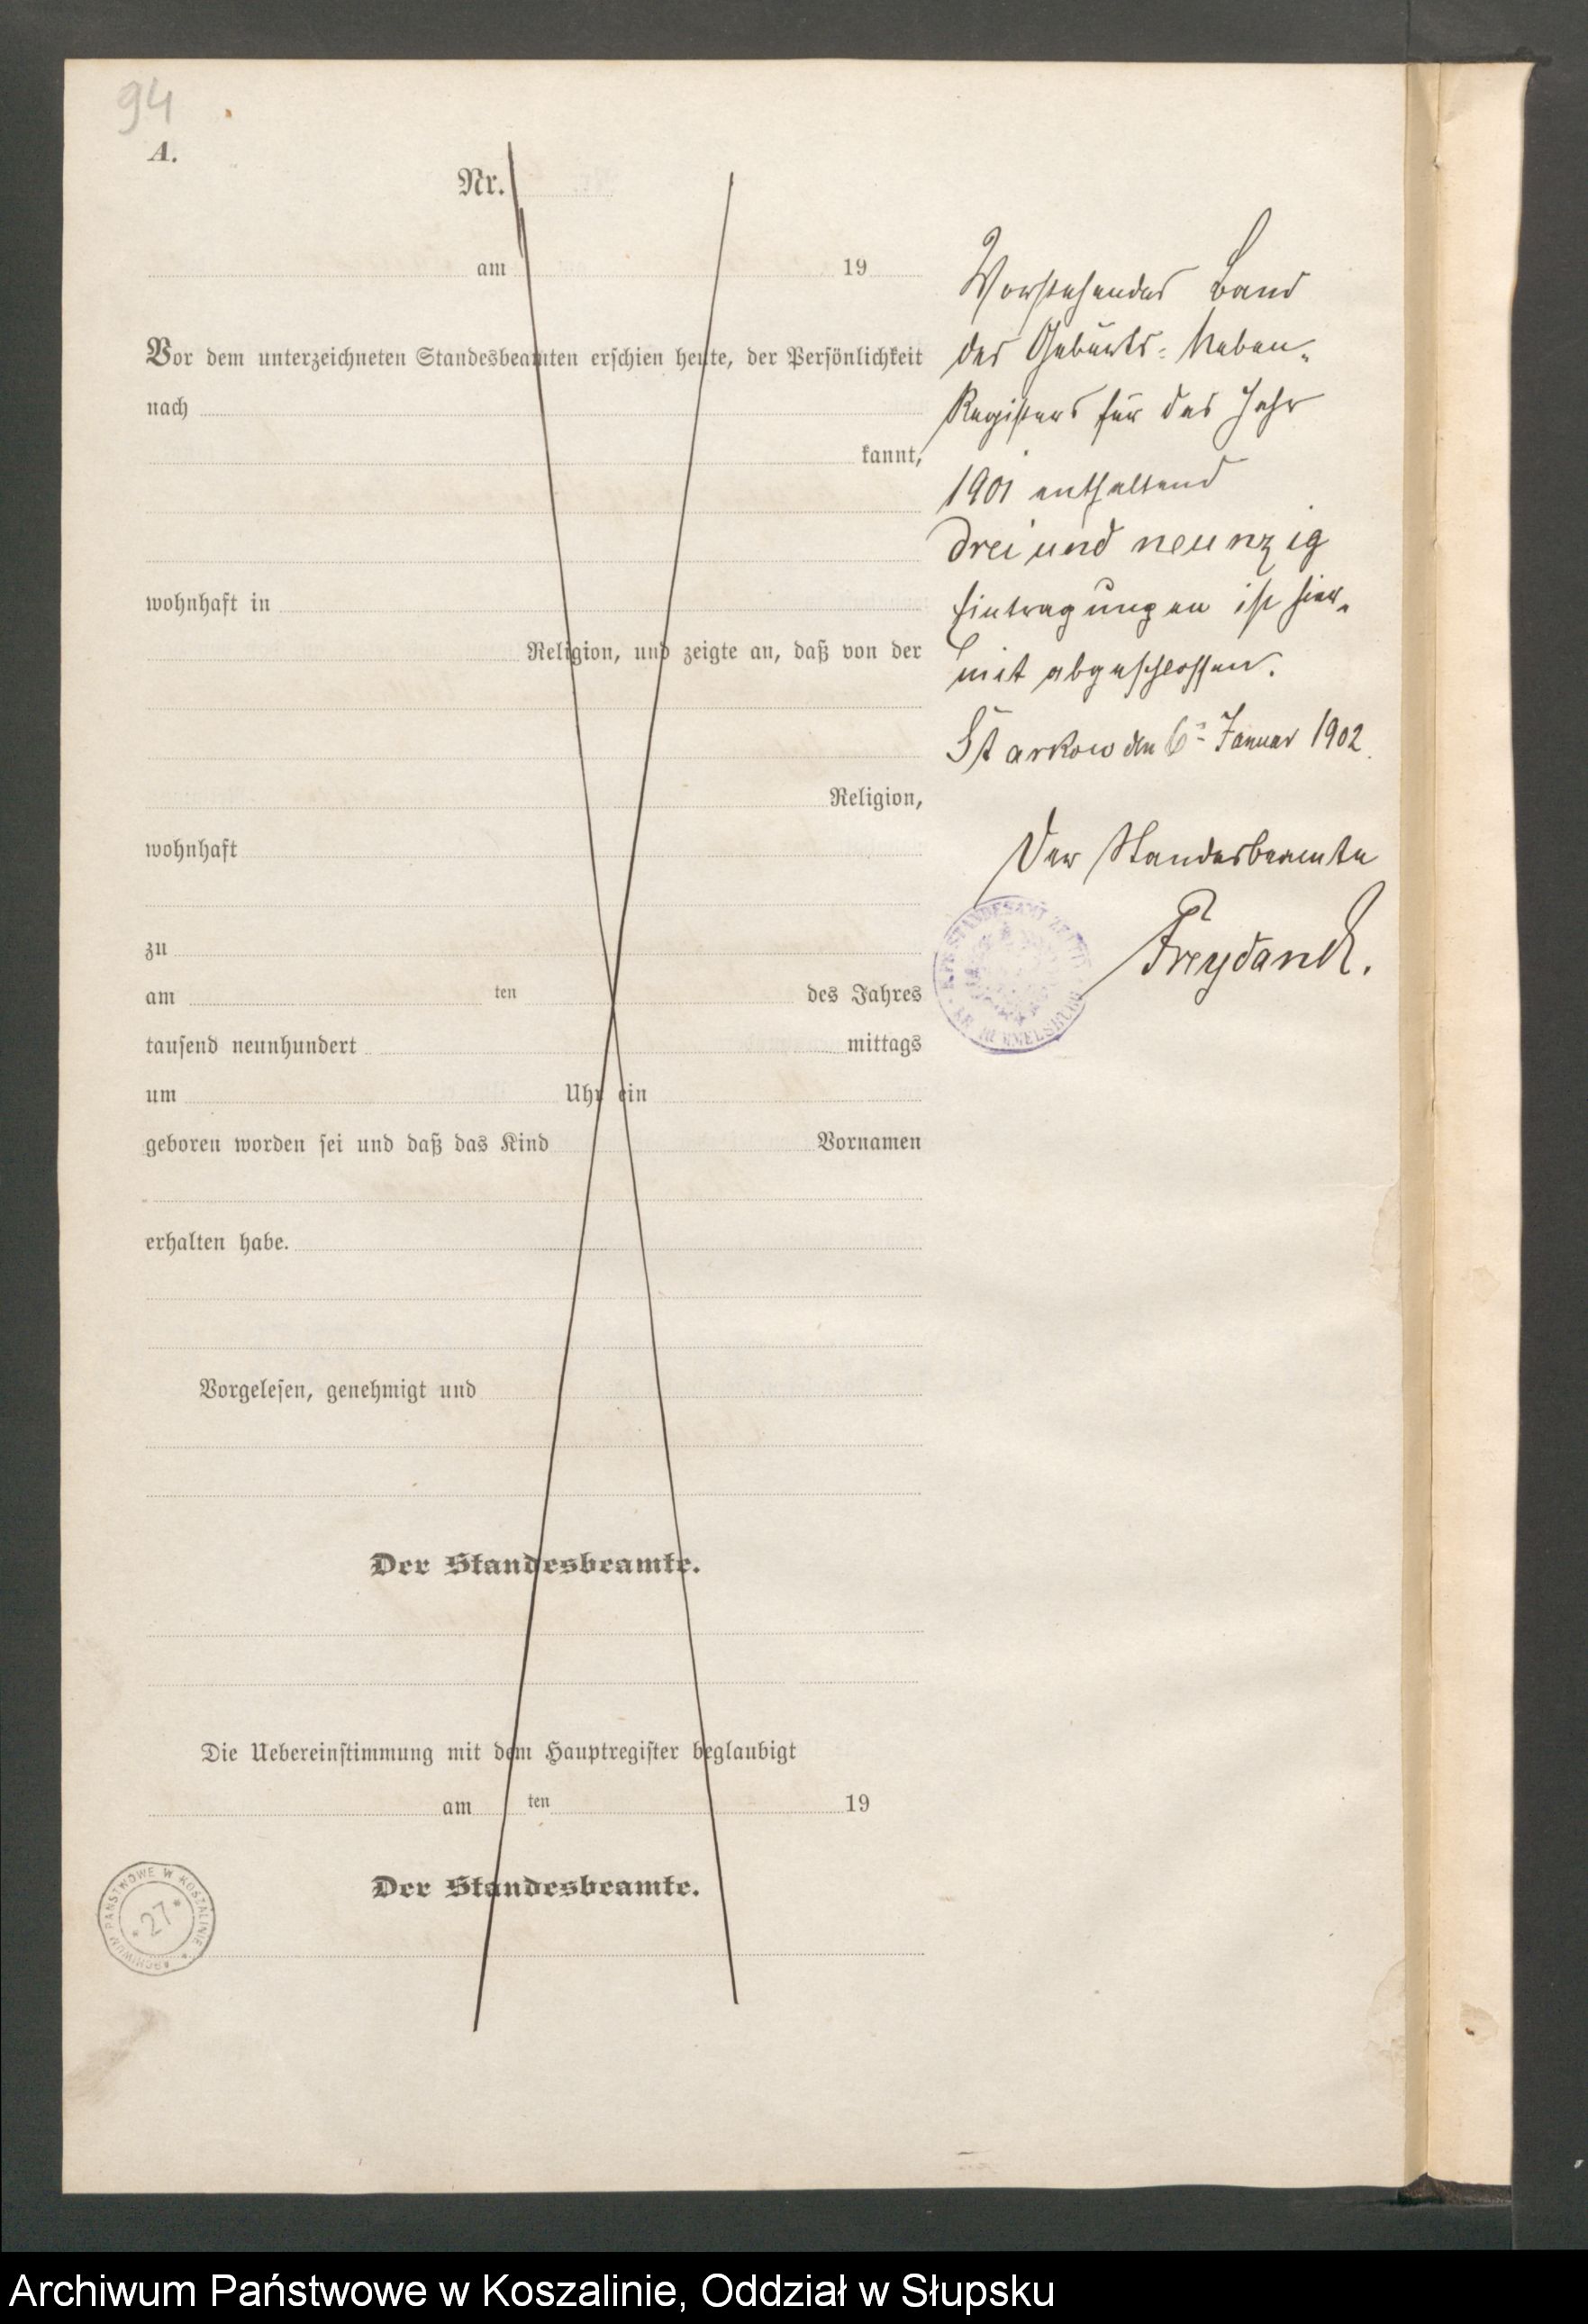 94
A.
Nr.
am 19
Vor dem unterzeichneten Standesbeamten erschien heute, der Persönlichkeit
nach
kannt,
wohnhaft in
Religion, und zeigte an, daß von der
Religion,
wohnhaft
zu
am ten des Jahres
tausend neunhundert mittags
um Uhr ein
geboren worden sei und daß das Kind Vornamen
erhalten habe.
Vorgelesen, genehmigt und
Der Standesbeamte.
Die Uebereinstimmung mit dem Hauptregister beglaubigt
am ten 19
Der Standesbeamte.
Vorstehendes Band
des Geburts-Neben-
Registers für das Jahr
1901 enthaltend
drei und neunzig
Eintragungen ist hier-
mit abgeschlossen.
Starkow den 6ⁿ Januar 1902.
Der Standesbeamte
Freydanck.
STANDESAMT
RUMMELSBURG
ARCHIWUM PAŃSTWOWE W KOSZALINIE
* 27 *
Archiwum Państwowe w Koszalinie, Oddział w Słupsku